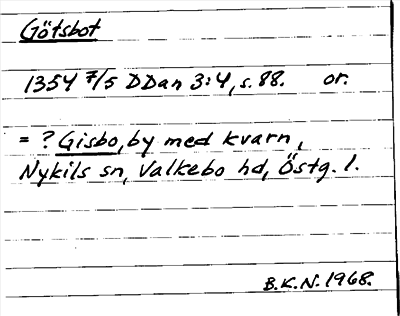 Götsbot
1354 7/5 DDan 3:4, s. 88. or.
= ? Gisbo, by med kvarn,
Nykils sn, Valkebo hd, Östg. l.
B.K.N. 1968.